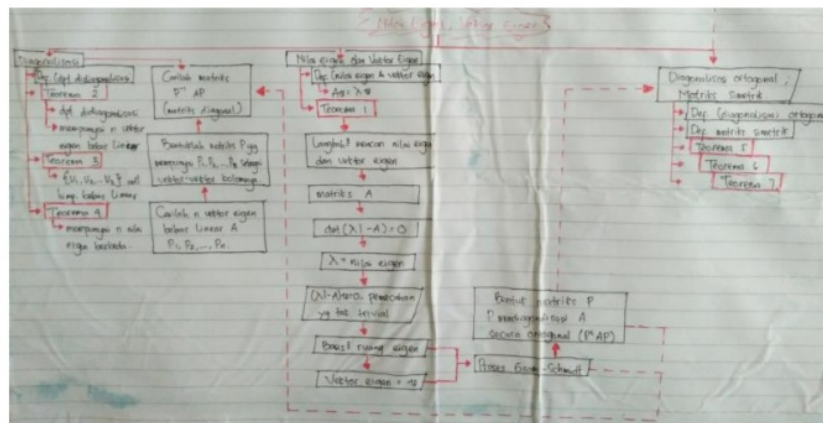 Nilai Eigen, Vektor Eigen
Diagonalisasi
Def. (dpt didiagonalisasi
Teorema 2
dpt didiagonalisasi
mempunyai n vektor
eigen bebas linear
Teorema 3
Teorema 4
mempunyai n nilai
eigen berbeda.
Carilah matriks
P⁻¹ AP
(matriks diagonal)
Bentuklah matriks P yg
mempunyai P₁, P₂, ..., Pₙ sebagai
vektor-vektor kolomnya.
Carilah n vektor eigen
bebas linear A
P₁, P₂, ..., Pₙ.
Nilai eigen dan Vektor Eigen
Def. (nilai eigen & vektor eigen
Teorema 1
Langkah² mencari nilai eigen
dan vektor eigen
matriks A
det (λI - A) = 0
λ = nilai eigen
pemecahan
yg tak trivial
Basis² ruang eigen
Vektor eigen =
Proses Gram-Schmidt
Bentuk matriks P
P mendiagonalisasi A
secara ortogonal
Diagonalisasi ortogonal ;
Matriks Simetrik.
Def. (diagonalisasi) ortogonal
Def. matriks simetrik
Teorema 5
Teorema 6
Teorema 7